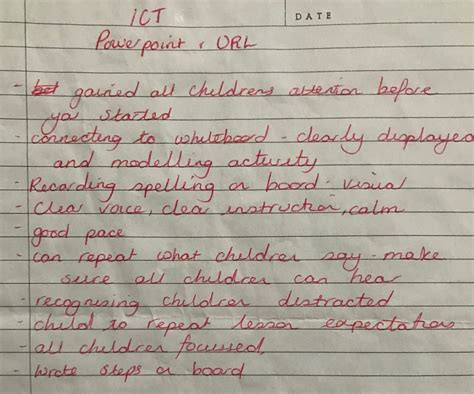 ICT
DATE
Powerpoint & URL
- bet gained all childrens attention before
you started
- connecting to whiteboard - clearly displayed
and modelling activity
- Recording spelling on board - visual
- Clear voice, clear instruction, calm
- good pace
- can repeat what children say - make
sure all children can hear
- recognising children distracted
- child to repeat lesson expectations
- all children focussed,
- wrote steps on board